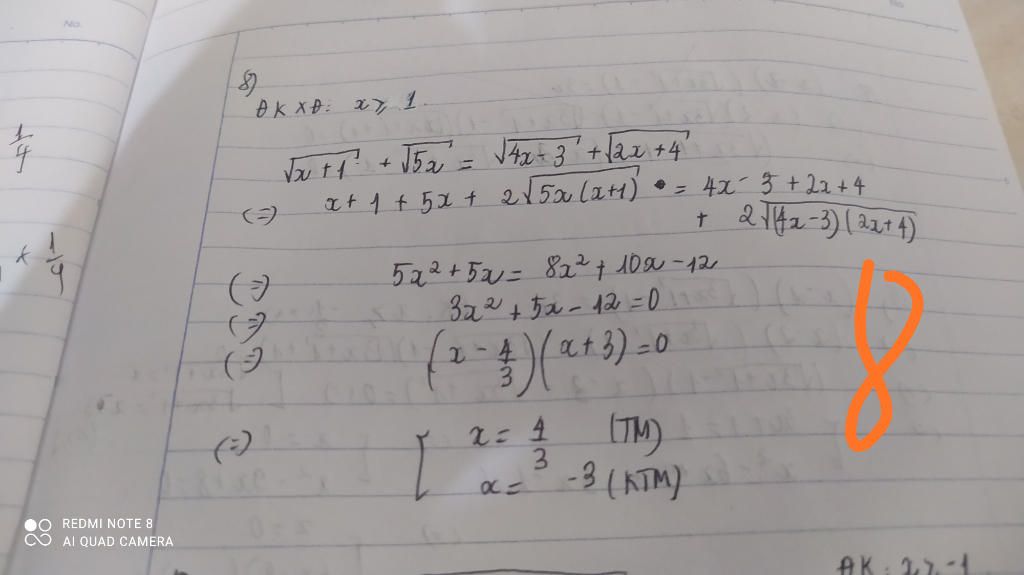 No.
No
8)
ĐKXĐ: x ⩾ 1.
1/4
√(x+1) + √(5x) = √(4x-3) + √(2x+4)
(=) x + 1 + 5x + 2√(5x(x+1)) = 4x - 3 + 2x + 4
+ 2√((4x-3)(2x+4))
x 1/4
(=) 5x² + 5x = 8x² + 10x - 12
(=) 3x² + 5x - 12 = 0
(=) (x - 4/3)(x + 3) = 0
8
(=) [ x = 4/3 (TM)
x = -3 (KTM)
REDMI NOTE 8
AI QUAD CAMERA
ĐK: x ⩾ -1